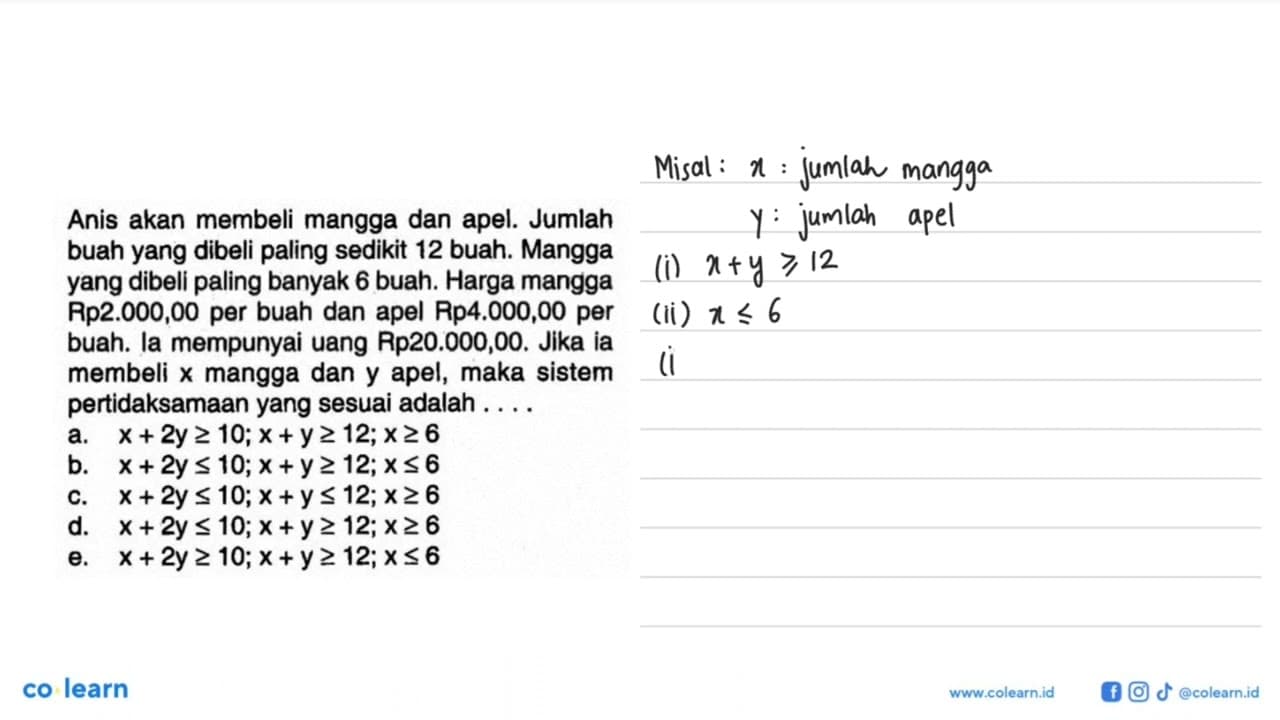 Anis akan membeli mangga dan apel. Jumlah
buah yang dibeli paling sedikit 12 buah. Mangga
yang dibeli paling banyak 6 buah. Harga mangga
Rp2.000,00 per buah dan apel Rp4.000,00 per
buah. Ia mempunyai uang Rp20.000,00. Jika ia
membeli x mangga dan y apel, maka sistem
pertidaksamaan yang sesuai adalah . . . .
a. x + 2y ≥ 10; x + y ≥ 12; x ≥ 6
b. x + 2y ≤ 10; x + y ≥ 12; x ≤ 6
c. x + 2y ≤ 10; x + y ≤ 12; x ≥ 6
d. x + 2y ≤ 10; x + y ≥ 12; x ≥ 6
e. x + 2y ≥ 10; x + y ≥ 12; x ≤ 6
Misal : x : jumlah mangga
y : jumlah apel
(i) x + y ≥ 12
(ii) x ≤ 6
(i
co learn
www.colearn.id @colearn.id